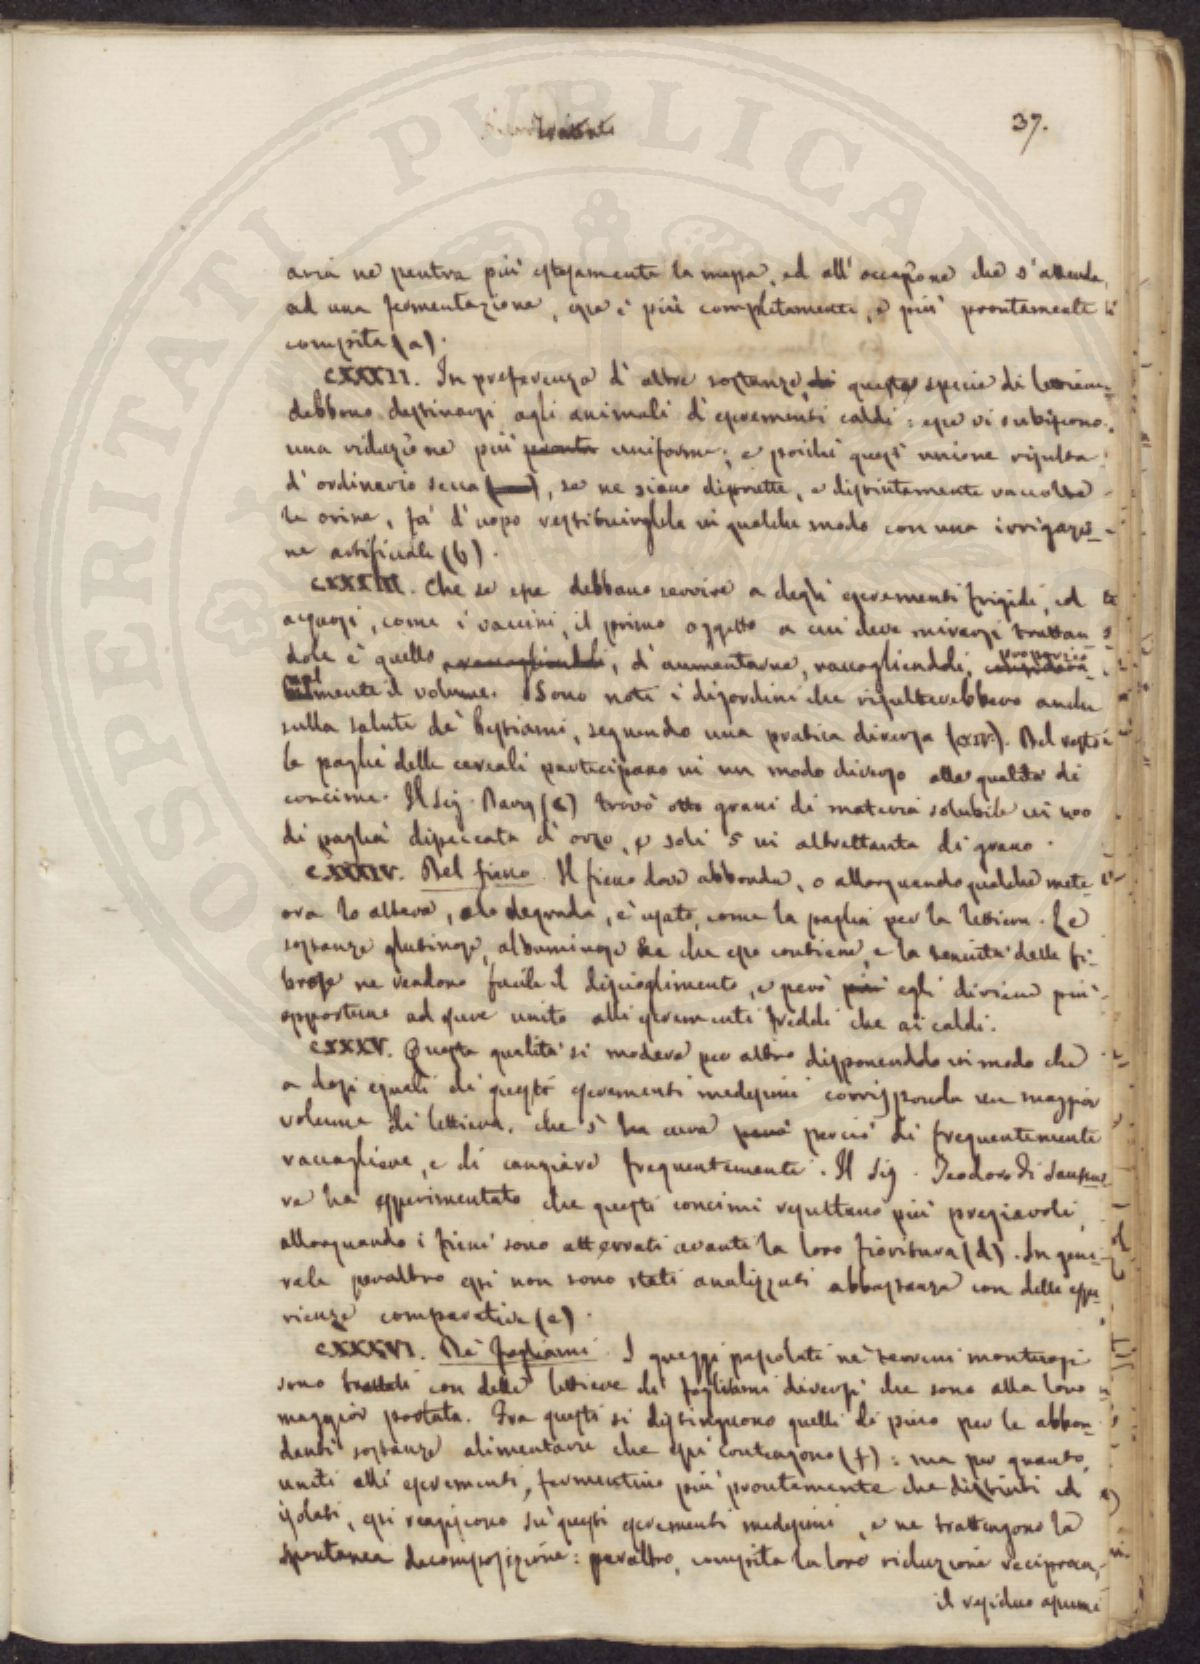 37.
aria ne penetra più estesamente la massa, ed all' occasione che s' attenda
ad una fermentazione, essa è più completamente, e più prontamente
compita (a).
CXXXII. In preferenza d' altre sostanze queste specie di lettiere
debbono destinarsi agli animali d' escrementi caldi: esse vi subiscono
una riduzione più pronta uniforme; e poichè quest' unione risulta
d' ordinario secca, se ne siano disgiunte, e distintamente raccolte
le orine, fa d' uopo restituirgliele in qualche modo con una irrigazio-
ne artificiale (b).
CXXXIII. Che se esse debbano servire a degli escrementi frigidi, ed
acquosi, come i vaccini, il primo oggetto a cui deve mirarsi trattan
dole è quello, d' aumentarne, raccogliendoli, proporzio
nalmente il volume. Sono noti i disordini che risulterebbero anche
sulla salute de' bestiami, seguendo una pratica diversa (CXIV). Del resto
le paglie delle cereali partecipano in un modo diverso alle qualità di
concime. Il Sig. Davy (c) trovò otto grani di materia solubile in 400
di paglia disseccata d' orzo, e soli 5 in altrettanta di grano.
CXXXIV. Del fieno. Il fieno dove abbonda, o allorquando qualche mete
ora lo altera, e lo degrada, è usato, come la paglia per la lettiera. Le
sostanze glutinose, albuminose &c che esso contiene, e la tenuità delle fi-
brose ne rendono facile il discioglimento, e però più egli diviene più
opportuno ad essere unito alli escrementi freddi che ai caldi.
CXXXV. Questa qualità si modera per altro disponendolo in modo che
a dosi eguali di questi escrementi medesimi corrisponda un maggior
volume di lettiera, che s' ha cura però perciò di frequentemente
raccogliere, e di cangiare frequentemente. Il Sig. Teodoro di Saussu-
re ha esperimentato che questi concimi resultano più pregiavoli,
allorquando i fieni sono atterrati avanti la loro fioritura (d). In gene-
rale peraltro essi non sono stati analizzati abbastanza con delle espe-
rienze comparative (e).
CXXXVI. De' fogliami. I greggi pascolati ne' terreni montuosi
sono trattati con delle lettiere di fogliami diversi che sono alla loro
maggior portata. Fra questi si distinguono quelli di pino per le abbon-
danti sostanze alimentarie che essi contengono (f): ma per quanto,
uniti alli escrementi, fermentino più prontamente che distinti ed
isolati, essi reagiscono su' questi escrementi medesimi, e ne trattengono la
spontanea decomposizione: peraltro, compita la loro riduzione reciproca,
il residuo assume